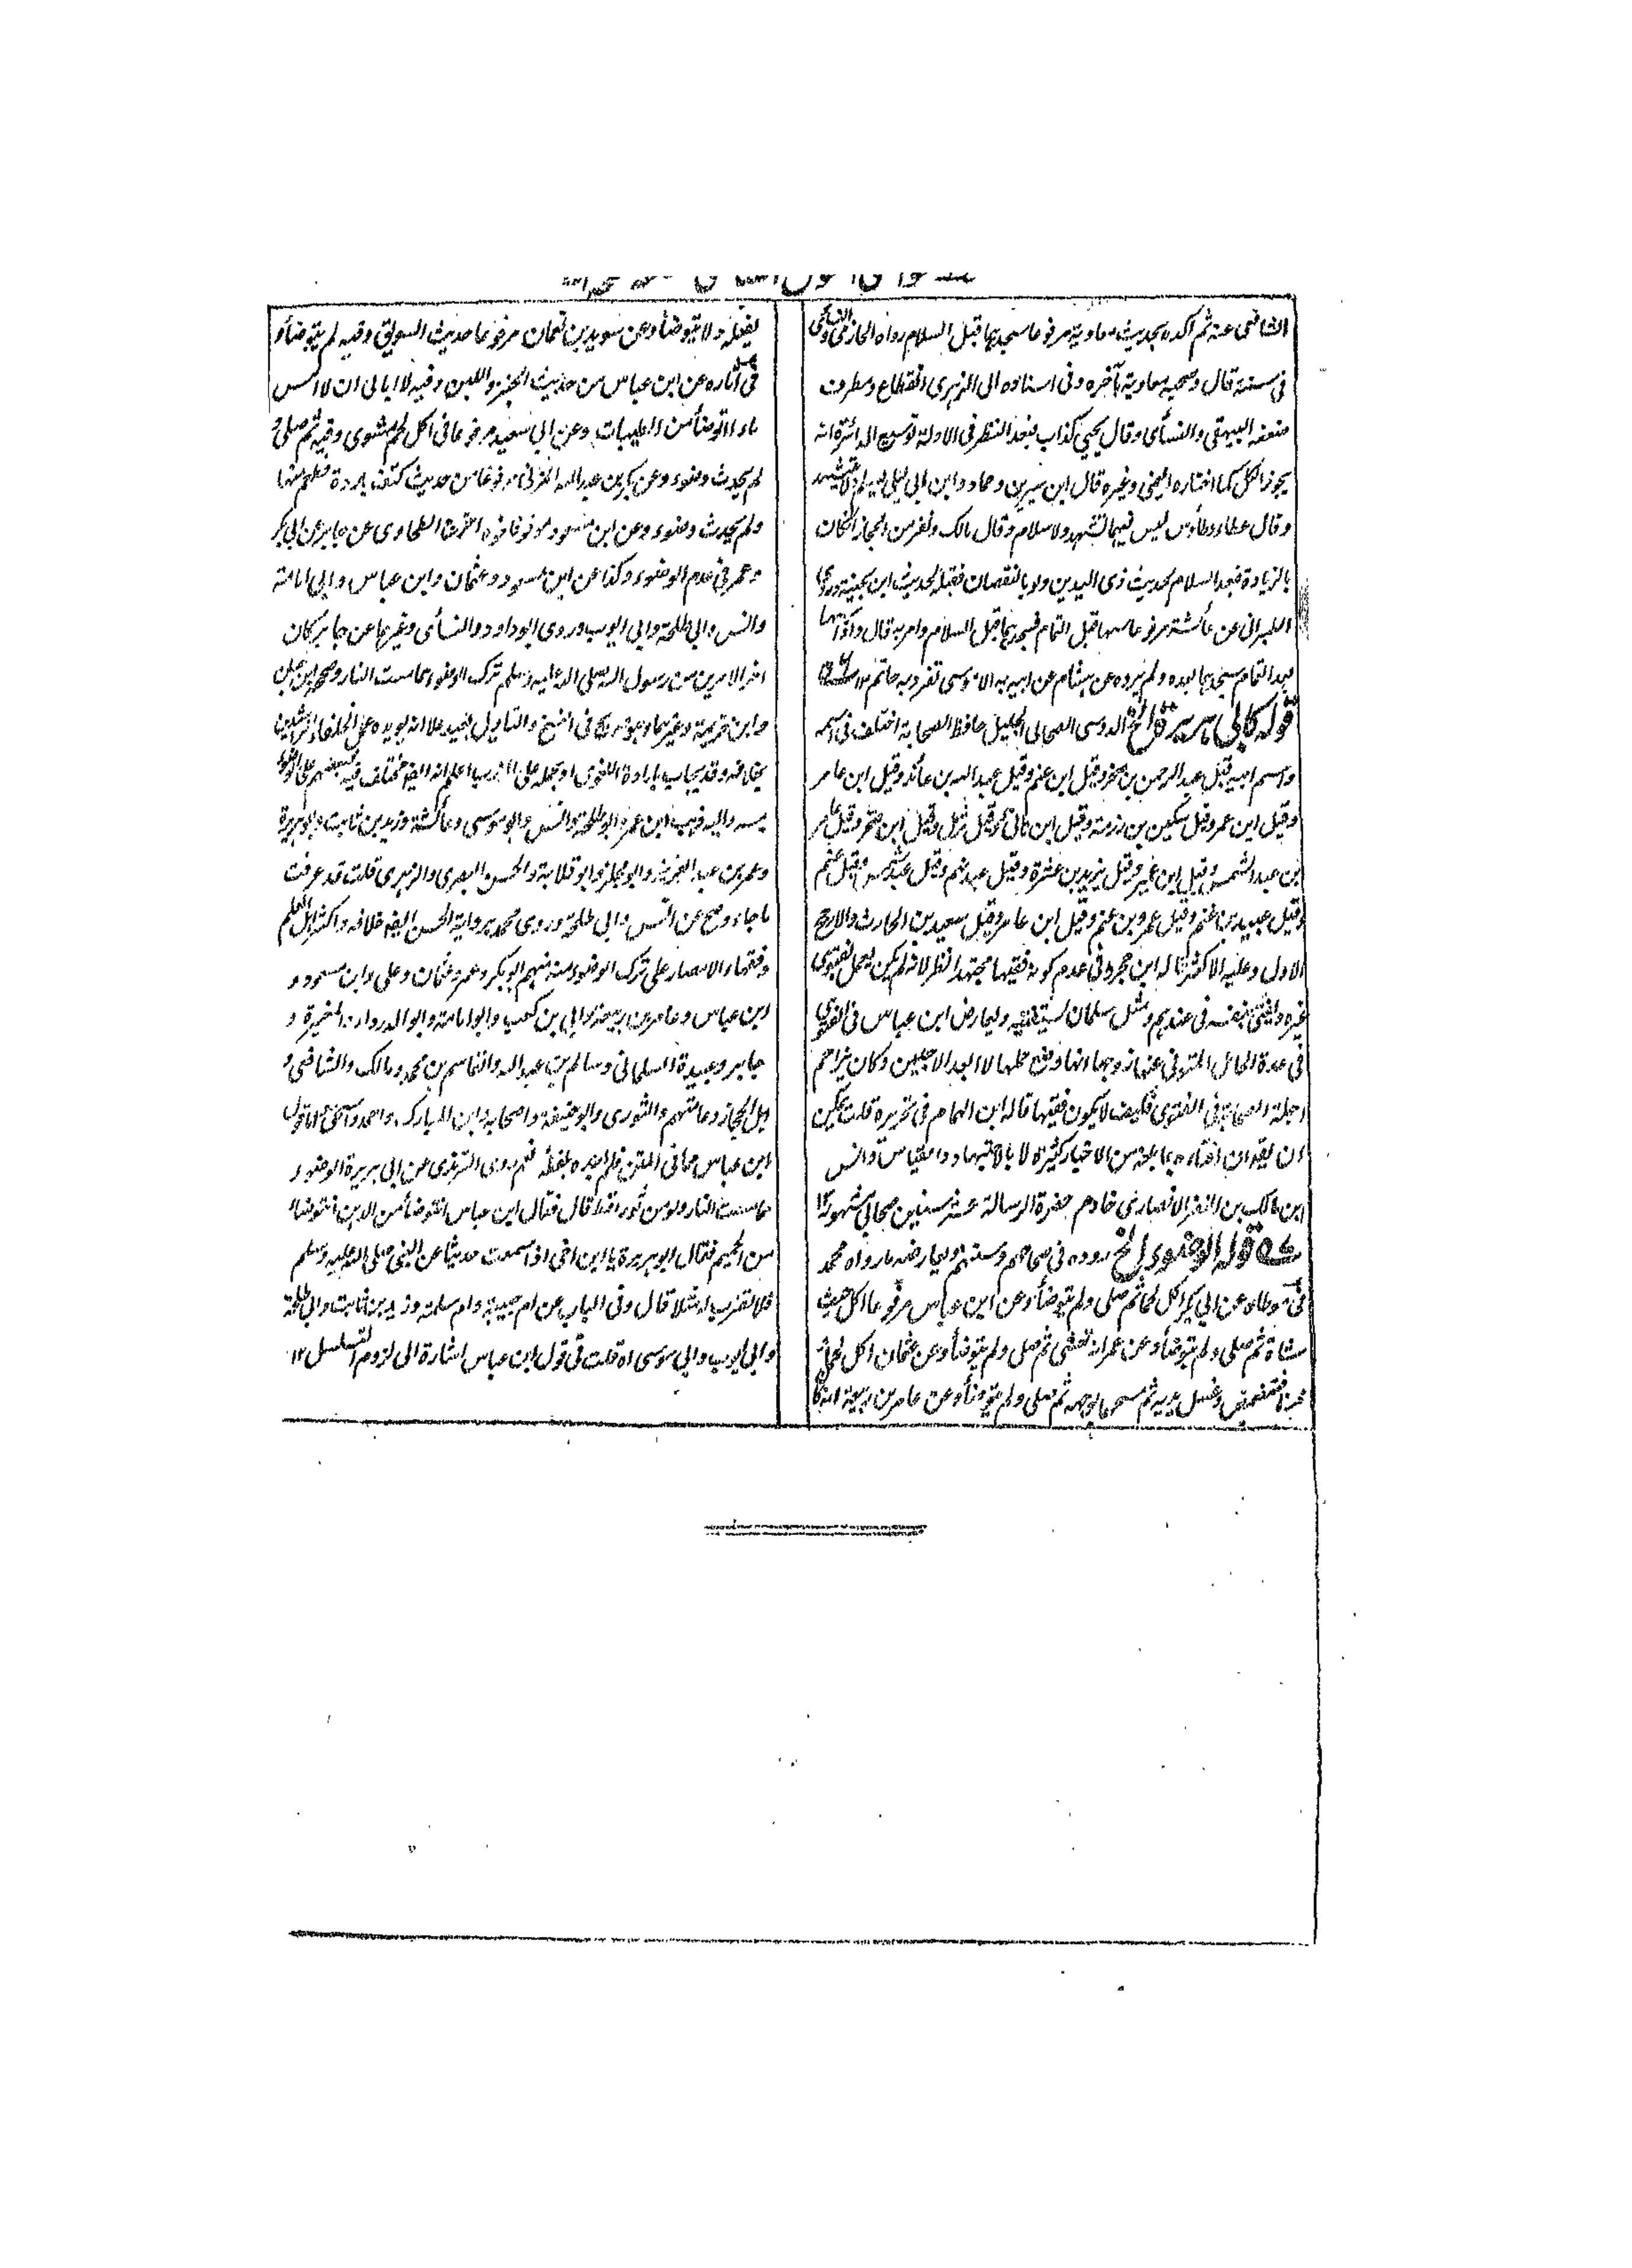 الشافعى عنه ثم اكده بحديث معاوية مرفوعا سجد بهما قبل السلام رواه الحازمى والنسائى
فى سننه قال وصحبه معاوية بآخره وفى اسناده الى الزهرى انقطاع ومطرف
ضعفه البيهقى والنسأى وقال يحيى كذاب فبعد النظر فى الادلة توسيع الدائرة انه
يجوز الكل كما اختاره العينى وغيره قال ابن سيرين وحماد وابن ابى ليلى يسلم ولا يتشهد
وقال عطاء وطأوس ليس فيهما تشهد ولا سلام وقال مالك ونفر من الحجاز ان كان
بالزيادة فبعد السلام لحديث ذى اليدين ولو بالنقصان فقبله لحديث ابن بحينة وروى
الطبرانى عن عائشة مرفوعا سها قبل التمام فسجد بهما قبل السلام وامر به قال واذا سها
بعد التمام سجد بها بعده ولم يروه عن هشام عن ابيه الا موسى تفرد به حاتم ١٢
قوله كابى هريرة الخ الدوسى الصحابى الجليل حافظ الصحابة اختلف فى اسمه
واسم ابيه قيل عبد الرحمن بن صخر وقيل ابن غنم وقيل عبد الله بن عائذ وقيل ابن عامر
وقيل ابن عمرو وقيل سكين بن رزمة وقيل ابن هانى وقيل ثرمل وقيل ابن صخر وقيل عامر
بن عبد الشمس وقيل ابن عمير وقيل يزيد بن عشرة وقيل عبد نهم وقيل عبد شمس وقيل غنم
وقيل عبيد بن غنم وقيل عمرو بن غنم وقيل ابن عامر وقيل سعيد بن الحارث والارجح
الاول وعليه الاكثر قاله ابن حجر وفى عدم كونه فقيها مجتهدا نظر لانه لم يكن يعمل بفتوى
غيره ويفتى بنفسه فى عندهم ومثل سلمان يستفتيه ويعارض ابن عباس فى الفتوى
فى عدة الحامل المتوفى عنها زوجها انها وضع حملها لا ابعد الاجلين وكان يزاحم
اجلة الصحابة فى الفتوى فكيف لا يكون فقيها قاله ابن الهمام فى تحريره قلت يمكن
ان يقول ان افتاءه بما بلغه من الاخبار كثيرة لا بالاجتهاد والقياس وانس
ابن مالك بن النضر الانصارى خادم حضرة الرسالة عشر سنين صحابى مشهور ١٢
قوله الوضوء الخ رووه فى صحاحهم وسننهم ويعارضه ما رواه محمد
فى موطاه عن ابى بكر اكل لحما ثم صلى ولم يتوضأ وعن ابن عباس مرفوعا اكل جنب
شاة ثم صلى ولم يتوضأ وعن عمر انه تعشى ثم صلى ولم يتوضأ وعن عثمان اكل لحما و
خبزا فتمضمض وغسل يديه ثم مسحهما بوجهه ثم صلى ولم يتوضأ وعن عامر بن ربيعة انه كا
يفعله ولا يتوضأ وعن سويد بن نعمان مرفوعا حديث السويق وفيه لم يتوضأ و
فى آثاره عن ابن عباس من حديث الخبز واللبن وفيه لا ابالى ان لا امس
ماء االتوضأ من الطيبات وعن ابى سعيد مرفوعا فى اكل لحم مشوى وفيه ثم صلى و
لم يحدث وضوء وعن بكر بن عبد الله المزنى مرفوعا من حديث كتف باردة فطعم منها
ولم يحدث وضوء وعن ابن مسعود موقوفا نحوه اخرجه الطحاوى عن جابر عن ابى بكر
وعمر فى عدم الوضوء وكذا عن ابن مسعود وعثمان وابن عباس وابى امامة
وانس وابى طلحة وابى ايوب وروى ابو داود والنسأى وغيرهما عن جابر كان
اخر الامرين من رسول الله صلى الله عليه وسلم ترك الوضوء مما مست النار وصححه ابن حبان
وابن خزيمة وغيرهما وهو صريح فى النسخ والتاويل بعيد علا انه يؤيده عمل الخلفاء الراشدين
بخلافه وقد يجاب بارادة اللغوى او بحمله على الندب اعلم انه ايضا مختلف فيه فبعضهم على الوضوء
منه واليه ذهب ابن عمر وابو طلحة وانس وابو موسى وعائشة وزيد بن ثابت وابو هريرة
وعمر بن عبد العزيز وابو مجلز وابو قلابة والحسن البصرى والزهرى قلت قد عرفت
ما جاء وصح عن انس وابى طلحة وروى محمد برواية الحسن ايضا خلافه واكثر اهل العلم
وفقهاء الامصار على ترك الوضوء منه منهم ابو بكر وعمر وعثمان وعلى وابن مسعود و
ابن عباس وعامر بن ربيعة وابى بن كعب وابو امامة وابو الدرداء والمغيرة و
جابر وعبيدة السلمانى وسالم بن عبد الله والقاسم بن محمد ومالك والشافعى و
اهل الحجاز وعامتهم والثورى وابو حنيفة واصحابه وابن المبارك واحمد واسحق اما قول
ابن عباس مما فى المتن فلم اجده بلفظه نعم روى الترمذى عن ابى هريرة الوضوء
مما مست النار ولو من ثور اقط قال فقال ابن عباس انتوضأ من الدهن انتوضأ
من الحميم فقال ابو هريرة يا ابن اخى اذا سمعت حديثا عن النبى صلى الله عليه وسلم
فلا تضرب له مثلا قال وفى الباب عن ام حبيبة وام سلمة وزيد بن ثابت وابى طلحة
وابى ايوب وابى موسى اه قلت فى قول ابن عباس اشارة الى لزوم التسلسل ١٢